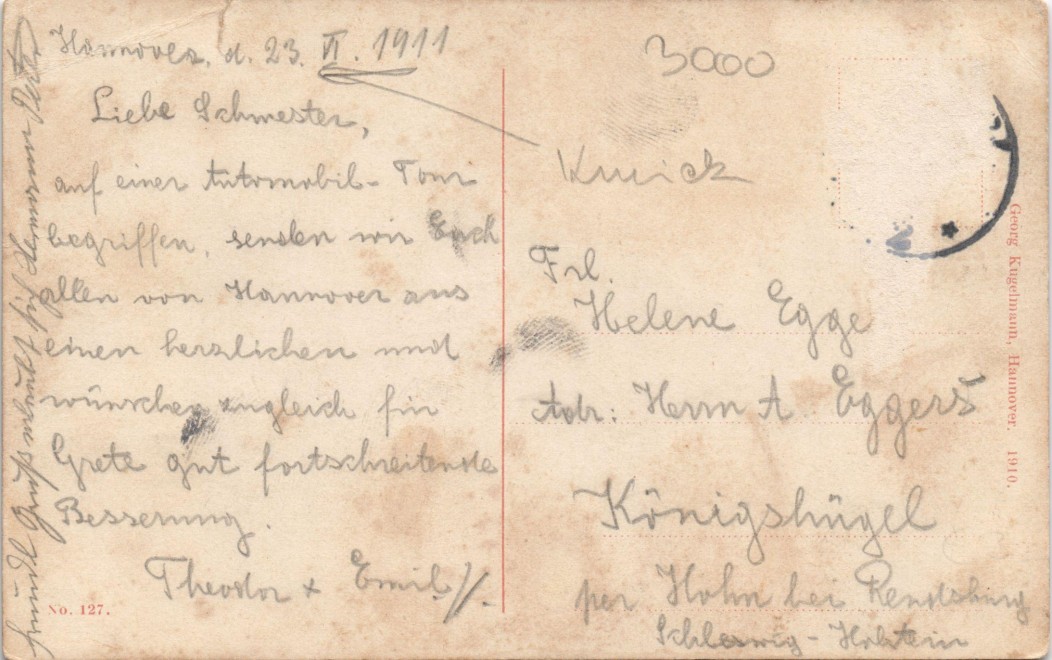 Hannover, d. 23. VI. 1911
Liebe Schwester,
auf einer Automobil-Tour
begriffen, senden wir Euch
allen von Hannover aus
einen herzlichen und
wünschen zugleich für
Grete gut fortschreitende
Besserung.
Theodor + Emil //.
No. 127.
3000
Knick
Frl.
Helene Egge
Adr: Herrn A Eggers
Königshügel
per Hohn bei Rendsburg
Schleswig-Holstein
Georg Kugelmann, Hannover. 1910.